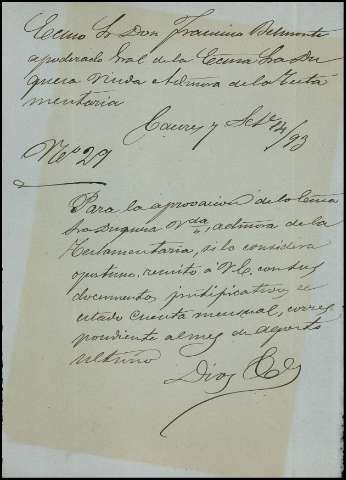 Ecmo Sr Don Francisco Belmonte
apoderado Gral de la Ecma Sra Du
quesa Viuda Admora de la Testa
mentaria
Caures y Setre 14/93
No 29
Para la aprovacion de la Ecma
Sra Duquesa Vda, admora de la
Testamentaria, si lo considera
oportuno, remito á V.E. con sus
documentos justificativos el
estado cuenta mensual, corres
pondiente al mes de agosto
ultimo
Dios &